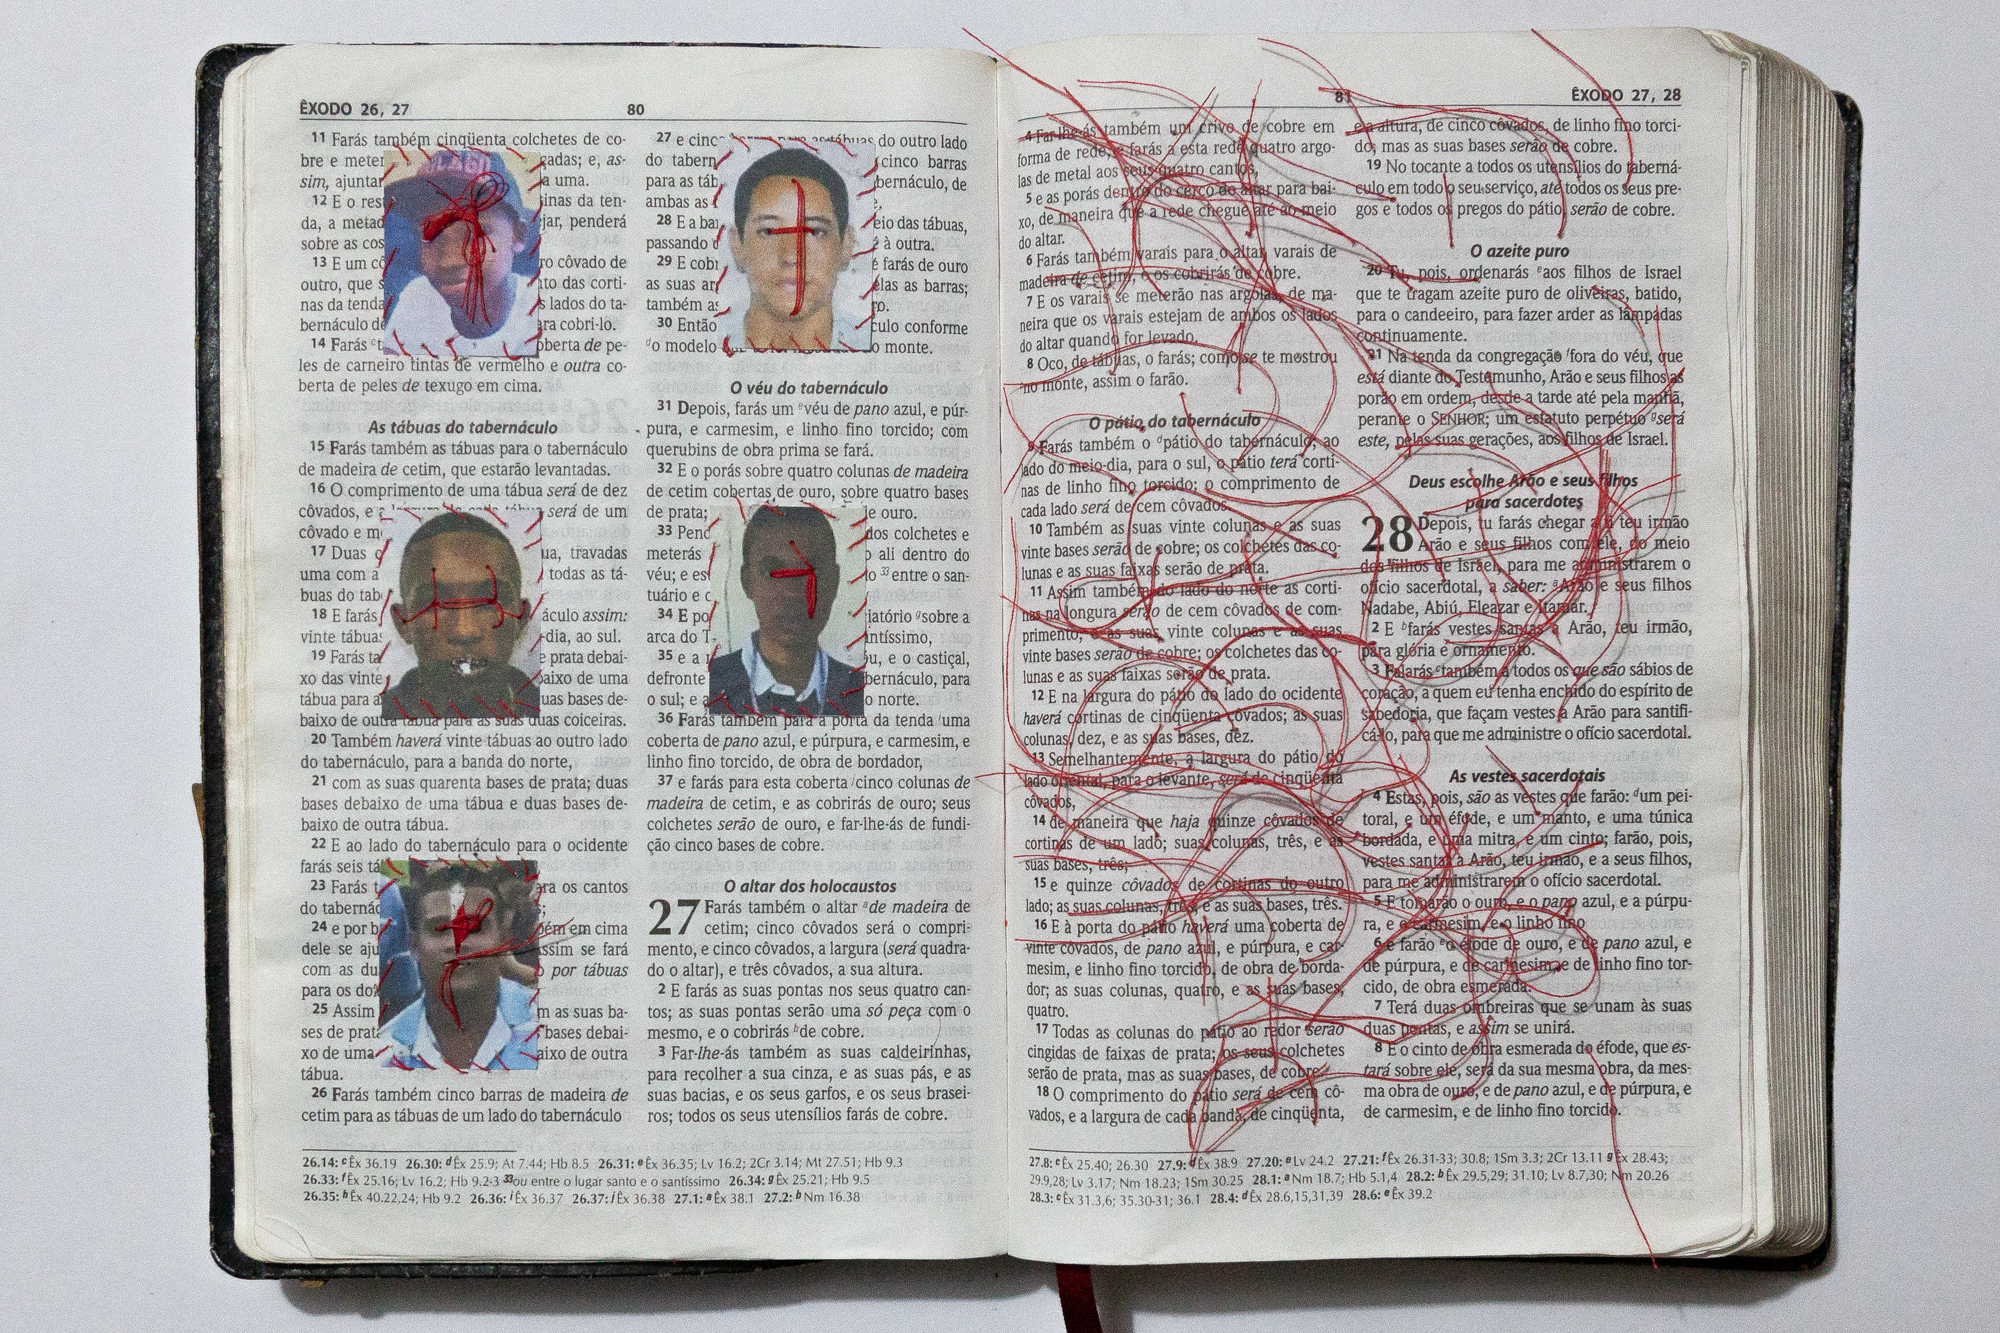 ÊXODO 26, 27
80
11 Farás também cinqüenta colchetes de co-
bre e meter cadas; e, as-
sim, ajuntar a uma.
12 E o res inas da ten-
da, a metad jar, penderá
sobre as cos
13 E um cô ro côvado de
outro, que s to das corti-
nas da tenda s lados do ta-
bernáculo de ara cobri-lo.
14 Farás oberta de pe-
les de carneiro tintas de vermelho e outra co-
berta de peles de texugo em cima.
As tábuas do tabernáculo
15 Farás também as tábuas para o tabernáculo
de madeira de cetim, que estarão levantadas.
16 O comprimento de uma tábua será de dez
côvados, e a largura de cada tábua será de um
côvado e m
17 Duas ua, travadas
uma com a todas as tá-
buas do tab
18 E farás áculo assim:
vinte tábuas -dia, ao sul.
19 Farás ta e prata debai-
xo das vinte aixo de uma
tábua para a uas bases de-
baixo de outra tábua para as suas duas coiceiras.
20 Também haverá vinte tábuas ao outro lado
do tabernáculo, para a banda do norte,
21 com as suas quarenta bases de prata; duas
bases debaixo de uma tábua e duas bases de-
baixo de outra tábua.
22 E ao lado do tabernáculo para o ocidente
farás seis tá
23 Farás t ara os cantos
do tabernác
24 e por b bém em cima
dele se aju assim se fará
com as du por tábuas
para os doi
25 Assim m as suas ba-
ses de prata bases debai-
xo de uma aixo de outra
tábua.
26 Farás também cinco barras de madeira de
cetim para as tábuas de um lado do tabernáculo
27 e cinco barras para as tábuas do outro lado
do tabern cinco barras
para as táb bernáculo, de
ambas as
28 E a bar eio das tábuas,
passando d à outra.
29 E cobr farás de ouro
as suas ar elas as barras;
também as o.
30 Então culo conforme
do modelo o monte.
O véu do tabernáculo
31 Depois, farás um e véu de pano azul, e púr-
pura, e carmesim, e linho fino torcido; com
querubins de obra prima se fará.
32 E o porás sobre quatro colunas de madeira
de cetim cobertas de ouro, sobre quatro bases
de prata; e ouro.
33 Pend dos colchetes e
meterás ali dentro do
véu; e es 33 entre o san-
tuário e o
34 E po iatório g sobre a
arca do T- ntíssimo,
35 e a m u, e o castiçal,
defronte bernáculo, para
o sul; e a o norte.
36 Farás também para a porta da tenda i uma
coberta de pano azul, e púrpura, e carmesim, e
linho fino torcido, de obra de bordador,
37 e farás para esta coberta j cinco colunas de
madeira de cetim, e as cobrirás de ouro; seus
colchetes serão de ouro, e far-lhe-ás de fundi-
ção cinco bases de cobre.
O altar dos holocaustos
27 Farás também o altar a de madeira de
cetim; cinco côvados será o compri-
mento, e cinco côvados, a largura (será quadra-
do o altar), e três côvados, a sua altura.
2 E farás as suas pontas nos seus quatro can-
tos; as suas pontas serão uma só peça com o
mesmo, e o cobrirás b de cobre.
3 Far-lhe-ás também as suas caldeirinhas,
para recolher a sua cinza, e as suas pás, e as
suas bacias, e os seus garfos, e os seus brasei-
ros; todos os seus utensílios farás de cobre.
26.14: c Êx 36.19 26.30: d Êx 25.9; At 7.44; Hb 8.5 26.31: e Êx 36.35; Lv 16.2; 2Cr 3.14; Mt 27.51; Hb 9.3
26.33: f Êx 25.16; Lv 16.2; Hb 9.2-3 33 ou entre o lugar santo e o santíssimo 26.34: g Êx 25.21; Hb 9.5
26.35: h Êx 40.22,24; Hb 9.2 26.36: i Êx 36.37 26.37: j Êx 36.38 27.1: a Êx 38.1 27.2: b Nm 16.38
81
ÊXODO 27, 28
4 Far-lhe-ás também um crivo de cobre em
forma de rede, e farás a esta rede quatro argo-
las de metal aos seus quatro cantos,
5 e as porás dentro do cerco do altar para bai-
xo, de maneira que a rede chegue até ao meio
do altar.
6 Farás também varais para o altar, varais de
madeira de cetim, e os cobrirás de cobre.
7 E os varais se meterão nas argolas, de ma-
neira que os varais estejam de ambos os lados
do altar quando for levado.
8 Oco, de tábuas, o farás; como se te mostrou
no monte, assim o farão.
O pátio do tabernáculo
9 Farás também o d pátio do tabernáculo; ao
lado do meio-dia, para o sul, o pátio terá corti-
nas de linho fino torcido; o comprimento de
cada lado será de cem côvados.
10 Também as suas vinte colunas e as suas
vinte bases serão de cobre; os colchetes das co-
lunas e as suas faixas serão de prata.
11 Assim também do lado do norte as corti-
nas na longura serão de cem côvados de com-
primento; e as suas vinte colunas e as suas
vinte bases serão de cobre; os colchetes das co-
lunas e as suas faixas serão de prata.
12 E na largura do pátio do lado do ocidente
haverá cortinas de cinqüenta côvados; as suas
colunas, dez, e as suas bases, dez.
13 Semelhantemente, a largura do pátio do
lado oriental, para o levante, será de cinqüenta
côvados,
14 de maneira que haja quinze côvados de
cortinas de um lado; suas colunas, três, e as
suas bases, três;
15 e quinze côvados de cortinas do outro
lado; as suas colunas, três, e as suas bases, três.
16 E à porta do pátio haverá uma coberta de
vinte côvados, de pano azul, e púrpura, e car-
mesim, e linho fino torcido, de obra de borda-
dor; as suas colunas, quatro, e as suas bases,
quatro.
17 Todas as colunas do pátio ao redor serão
cingidas de faixas de prata; os seus colchetes
serão de prata, mas as suas bases, de cobre.
18 O comprimento do pátio será de cem cô-
vados, e a largura de cada banda, de cinqüenta,
e a altura, de cinco côvados, de linho fino torci-
do; mas as suas bases serão de cobre.
19 No tocante a todos os utensílios do taberná-
culo em todo o seu serviço, até todos os seus pre-
gos e todos os pregos do pátio, serão de cobre.
O azeite puro
20 Tu, pois, ordenarás e aos filhos de Israel
que te tragam azeite puro de oliveiras, batido,
para o candeeiro, para fazer arder as lâmpadas
continuamente.
21 Na tenda da congregação f fora do véu, que
está diante do Testemunho, Arão e seus filhos as
porão em ordem, desde a tarde até pela manhã,
perante o SENHOR; um estatuto perpétuo g será
este, pelas suas gerações, aos filhos de Israel.
Deus escolhe Arão e seus filhos
para sacerdotes
28 Depois, tu farás chegar a ti teu irmão
Arão e seus filhos com ele, do meio
dos filhos de Israel, para me administrarem o
ofício sacerdotal, a saber: a Arão e seus filhos
Nadabe, Abiú, Eleazar e Itamar.
2 E b farás vestes santas a Arão, teu irmão,
para glória e ornamento.
3 Falarás c também a todos os que são sábios de
coração, a quem eu tenha enchido do espírito de
sabedoria, que façam vestes a Arão para santifi-
cá-lo, para que me administre o ofício sacerdotal.
As vestes sacerdotais
4 Estas, pois, são as vestes que farão: d um pei-
toral, e um éfode, e um manto, e uma túnica
bordada, e uma mitra, e um cinto; farão, pois,
vestes santas a Arão, teu irmão, e a seus filhos,
para me administrarem o ofício sacerdotal.
5 E tomarão o ouro, e o pano azul, e a púrpu-
ra, e o carmesim, e o linho fino
6 e farão e o éfode de ouro, e de pano azul, e
de púrpura, e de carmesim, e de linho fino tor-
cido, de obra esmerada.
7 Terá duas ombreiras que se unam às suas
duas pontas, e assim se unirá.
8 E o cinto de obra esmerada do éfode, que es-
tará sobre ele, será da sua mesma obra, da mes-
ma obra de ouro, e de pano azul, e de púrpura, e
de carmesim, e de linho fino torcido.
27.8: c Êx 25.40; 26.30 27.9: d Êx 38.9 27.20: e Lv 24.2 27.21: f Êx 26.31-33; 30.8; 1Sm 3.3; 2Cr 13.11 g Êx 28.43;
29.9,28; Lv 3.17; Nm 18.23; 1Sm 30.25 28.1: a Nm 18.7; Hb 5.1,4 28.2: b Êx 29.5,29; 31.10; Lv 8.7,30; Nm 20.26
28.3: c Êx 31.3,6; 35.30-31; 36.1 28.4: d Êx 28.6,15,31,39 28.6: e Êx 39.2